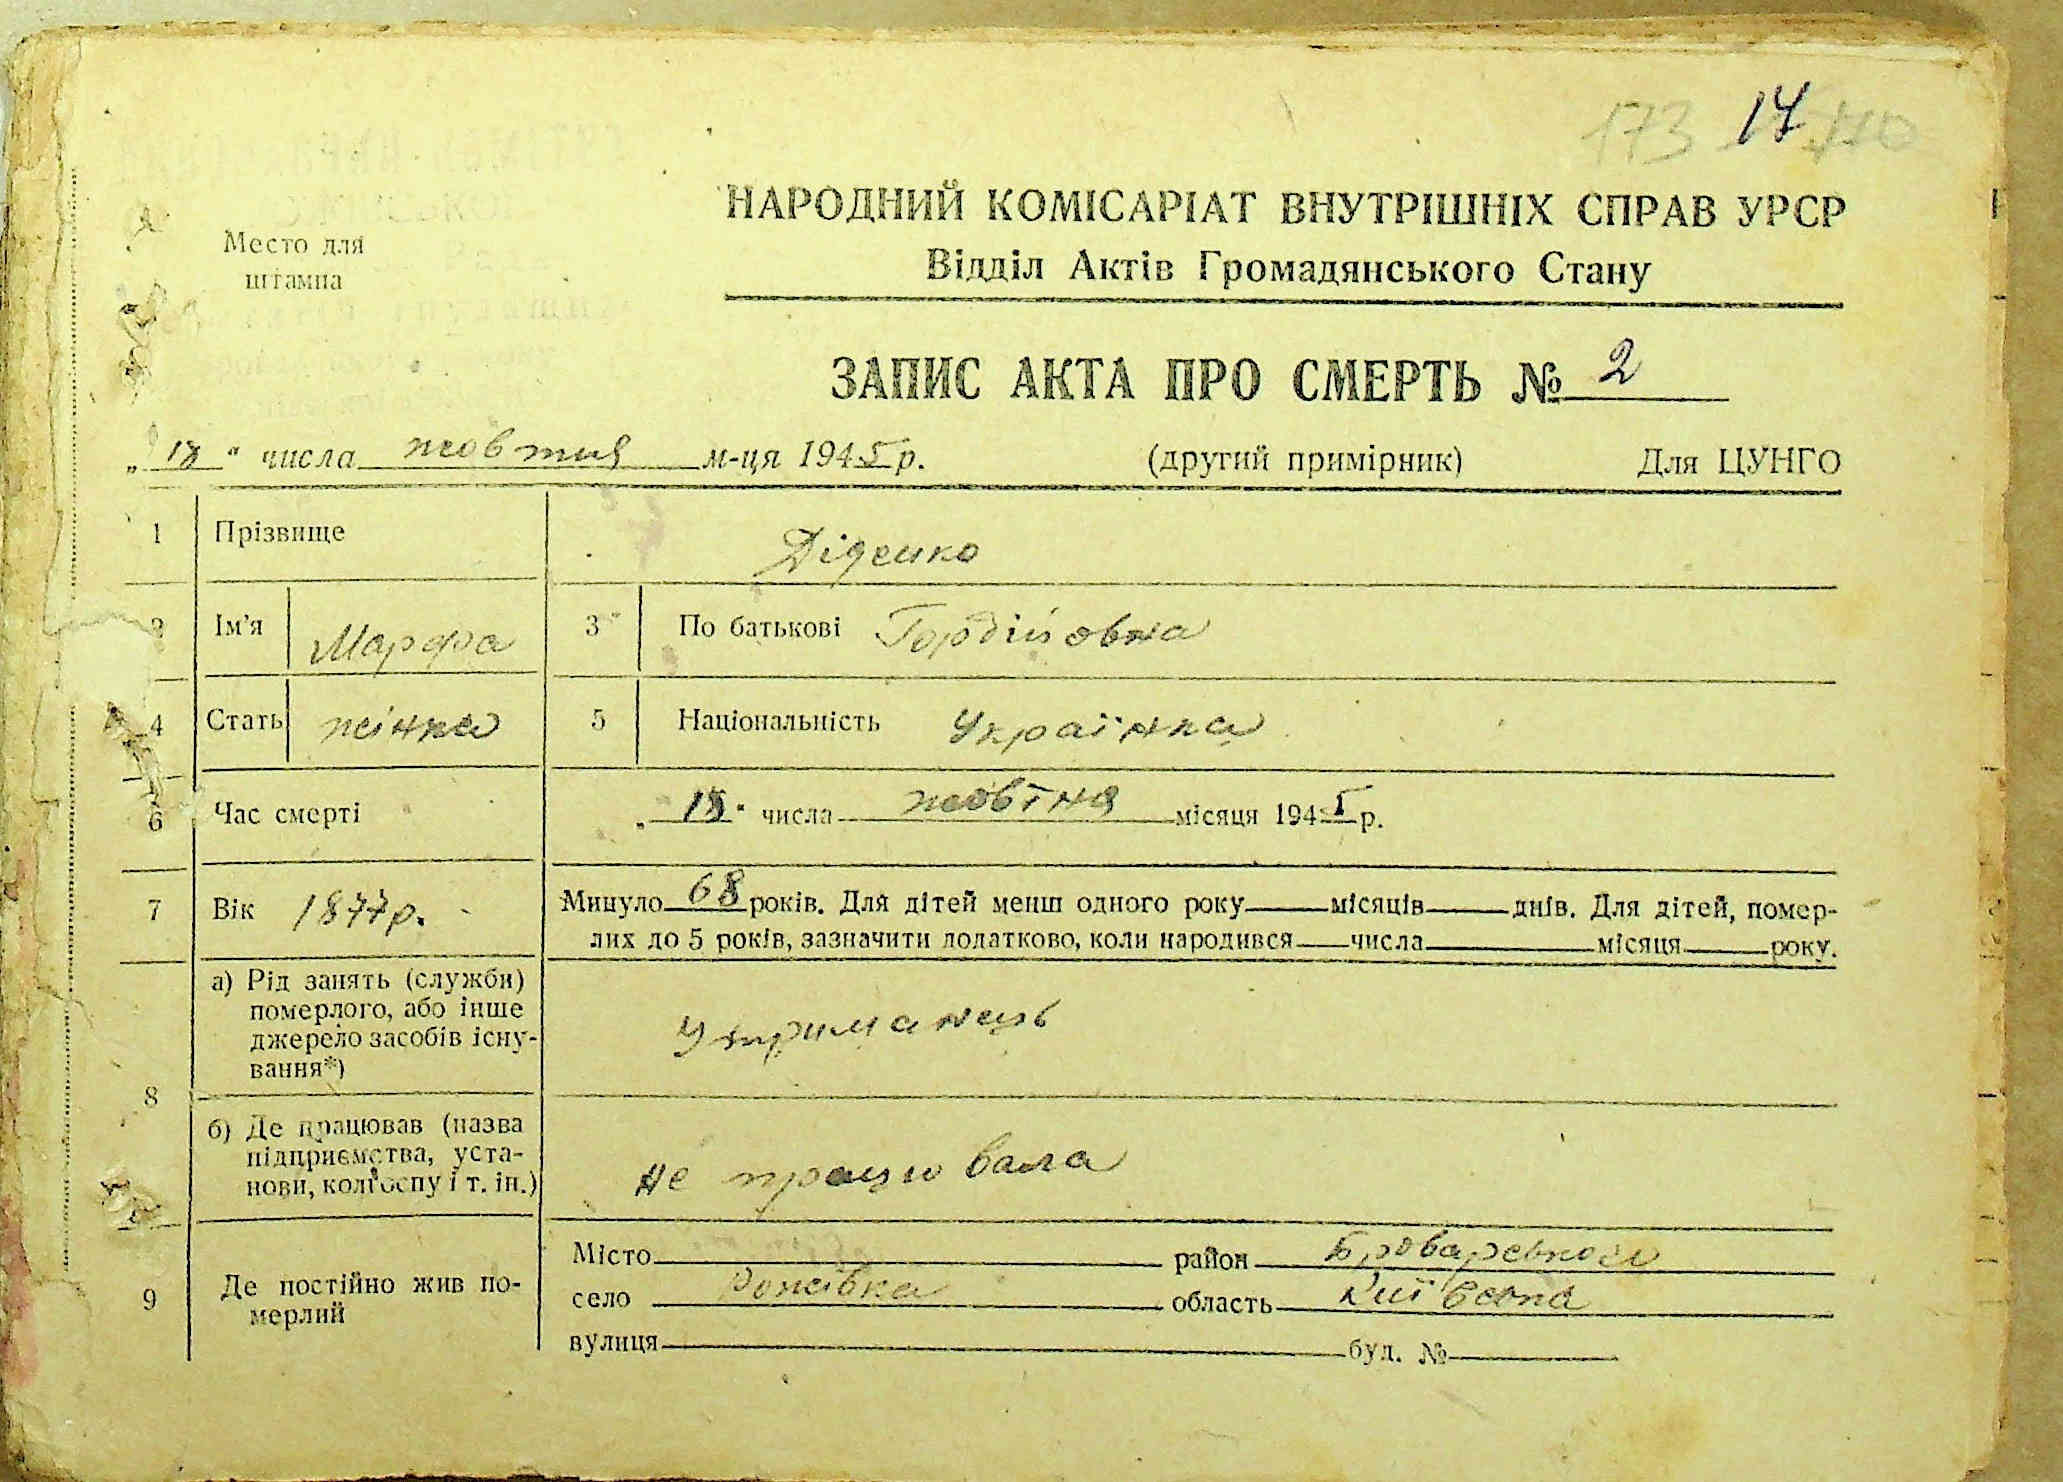 173 17 170
НАРОДНИЙ КОМІСАРІАТ ВНУТРІШНІХ СПРАВ УРСР
Место для штампа
Відділ Актів Громадянського Стану
ЗАПИС АКТА ПРО СМЕРТЬ № 2
„18“ числа жовтня м-ця 1945 р. (другий примірник) Для ЦУНГО
1 Прізвище Діденко
2 Ім’я Марфа 3 По батькові Гордійовна
4 Стать жінка 5 Національність Українка
6 Час смерті „18“ числа жовтня місяця 1945 р.
7 Вік 1877 р. Минуло 68 років. Для дітей менш одного року місяців днів. Для дітей, помер-
лих до 5 років, зазначити додатково, коли народився числа місяця року.
8 а) Рід занять (служби)
померлого, або інше
джерело засобів існу-
вання*)
Утриманець
б) Де працював (назва
підприємства, уста-
нови, колгоспу і т. ін.)
не працювала
9 Де постійно жив по-
мерлий
Місто район Броварський
село Рожівка область Київська
вулиця буд. №